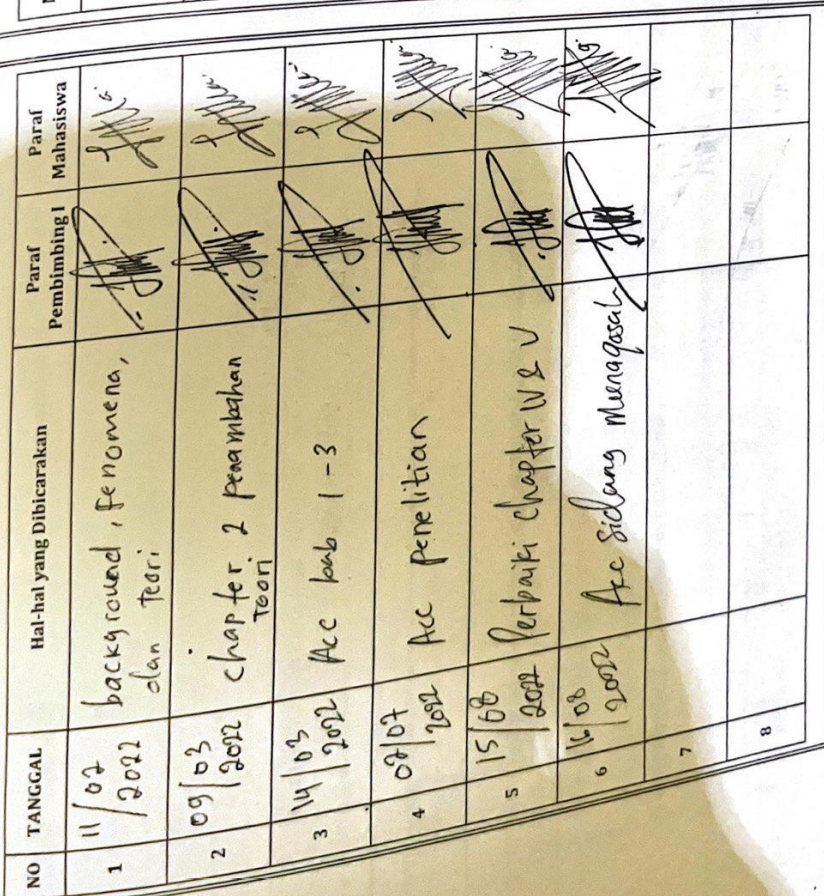 NO TANGGAL Hal-hal yang Dibicarakan Paraf Pembimbing I Paraf Mahasiswa
1 11/02 2022 background, fenomena,
dan teori
2 09/03 2022 chapter 2 penambahan
teori
3 14/03 2022 Acc bab 1-3
4 07/07 2022 Acc penelitian
5 15/08 2022 Perbaiki Chapter IV & V
6 16/08 2022 Acc Sidang Munaqasah
7
8